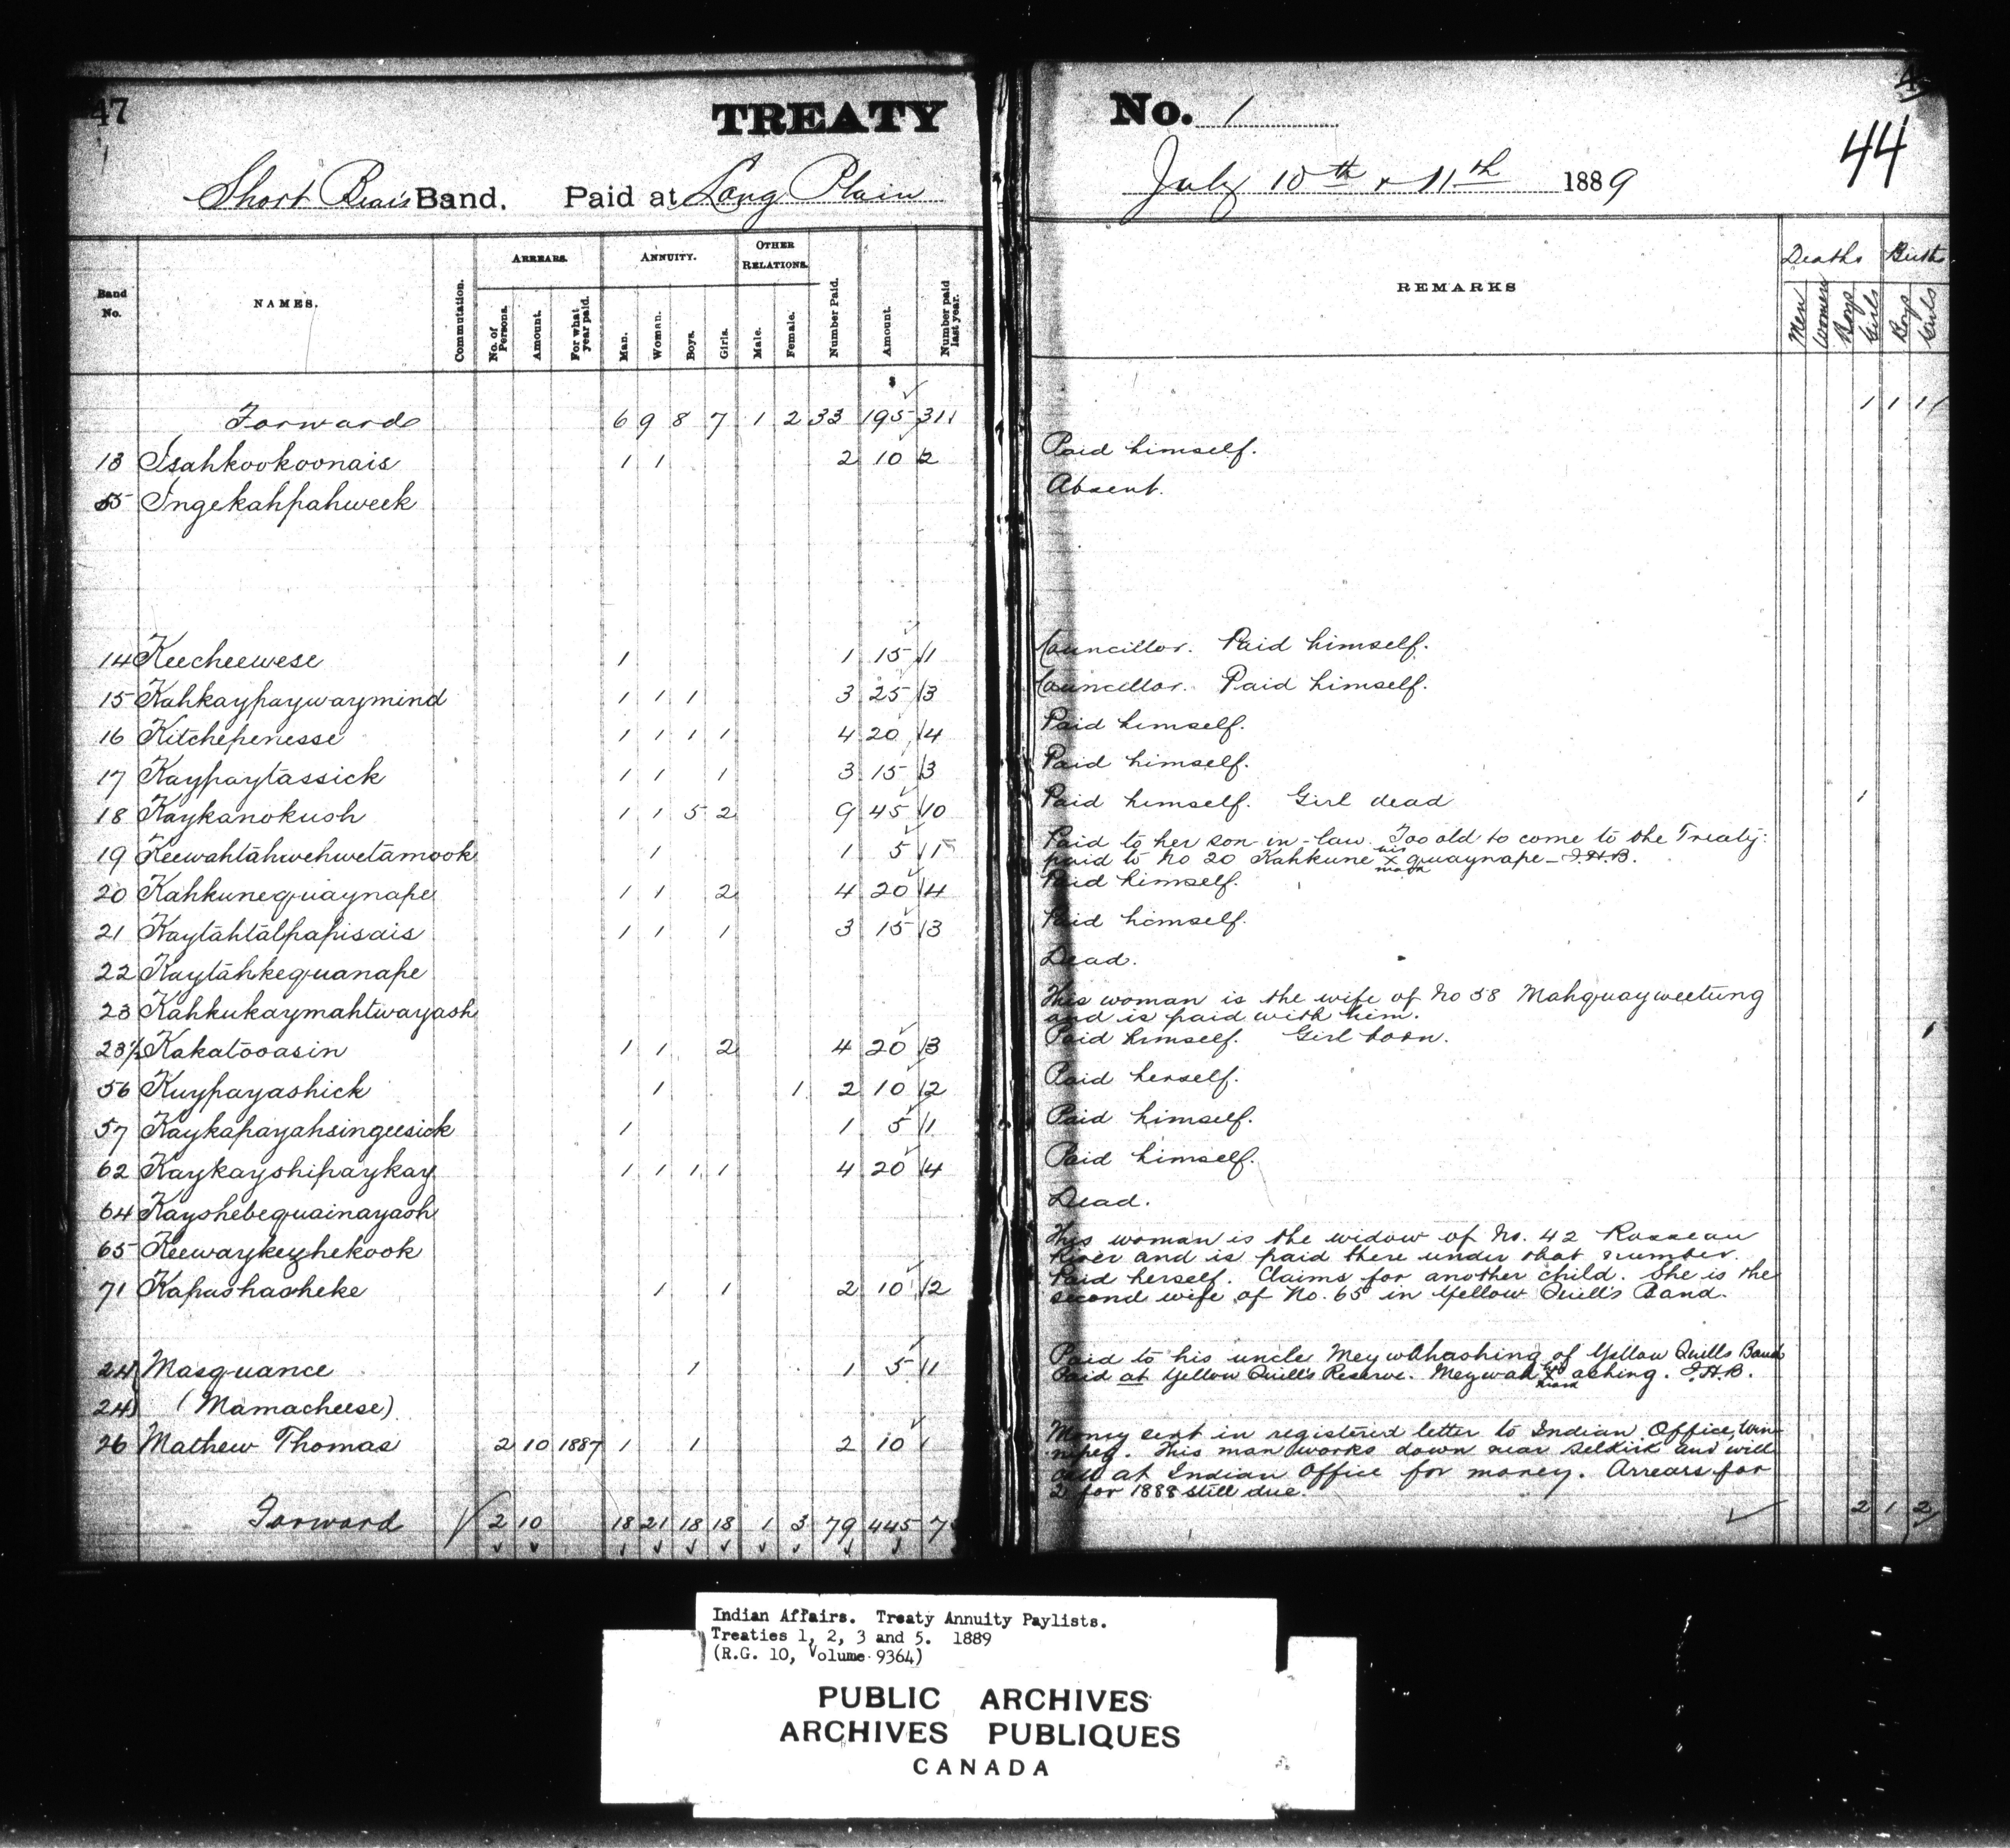 47
TREATY No. 1
44
Short Bear's Band. Paid at Long Plain July 10th & 11th 1889
Band No. NAMES. Commutation. ARREARS. No. of Persons. Amount. For what year paid. ANNUITY. Man. Woman. Boys. Girls. OTHER RELATIONS. Male. Female. Number Paid. Amount. Number paid last year. REMARKS Deaths Men Women Boys Girls Births Boys Girls
$
Forward 6 9 8 7 1 2 33 195 31 1 1 1
13 Isahkookoonais 1 1 2 10 2 Paid himself.
55 Ingekahpahweek Absent.
14 Keecheewese 1 1 15 1 Councillor. Paid himself.
15 Kahkaypaywaymind 1 1 1 3 25 3 Councillor. Paid himself.
16 Kitchepenesse 1 1 1 1 4 20 4 Paid himself.
17 Kaypaytassick 1 1 1 3 15 3 Paid himself.
18 Kaykanokush 1 1 5 2 9 45 10 Paid himself. Girl dead 1
19 Keewahtahwehwetamook 1 1 5 1 Paid to her son-in-law. Too old to come to the Treaty:
paid to No 20 Kahkune his x mark quaynape - J.H.B.
20 Kahkunequaynape 1 1 2 4 20 4 Paid himself.
21 Kaytahtalpapisais 1 1 1 3 15 3 Paid himself.
22 Kaytahkequanape Dead.
23 Kahkukaymahtwayash This woman is the wife of No 58 Mahquayweetung
and is paid with him.
23½ Kakatooasin 1 1 2 4 20 3 Paid himself. Girl born. 1
56 Kuypayashick 1 1 2 10 2 Paid herself.
57 Kaykapayahsingeesick 1 1 5 1 Paid himself.
62 Kaykayshipaykay 1 1 1 1 4 20 4 Paid himself.
64 Kayshebequainayash Dead.
65 Keewaykezhekook This woman is the widow of No. 42 Rosseau
River and is paid there under that number.
71 Kapashasheke 1 1 2 10 2 Paid herself. Claims for another child. She is the
second wife of No. 65 in Yellow Quill's Band.
24 Masquance 1 1 5 1 Paid to his uncle Meywahashing of Yellow Quills Band
Paid at Yellow Quill's Reserve. Meywah his x mark ashing. J.H.B.
24 (Mamacheese)
26 Mathew Thomas 2 10 1887 1 1 2 10 Money sent in registered letter to Indian Office, Win-
nipeg. This man works down near Selkirk and will
call at Indian Office for money. Arrears for
2 for 1888 still due.
Forward 2 10 18 21 18 18 1 3 79 445 2 1 2
Indian Affairs. Treaty Annuity Paylists.
Treaties 1, 2, 3 and 5. 1889
(R.G. 10, Volume 9364)
PUBLIC ARCHIVES
ARCHIVES PUBLIQUES
CANADA